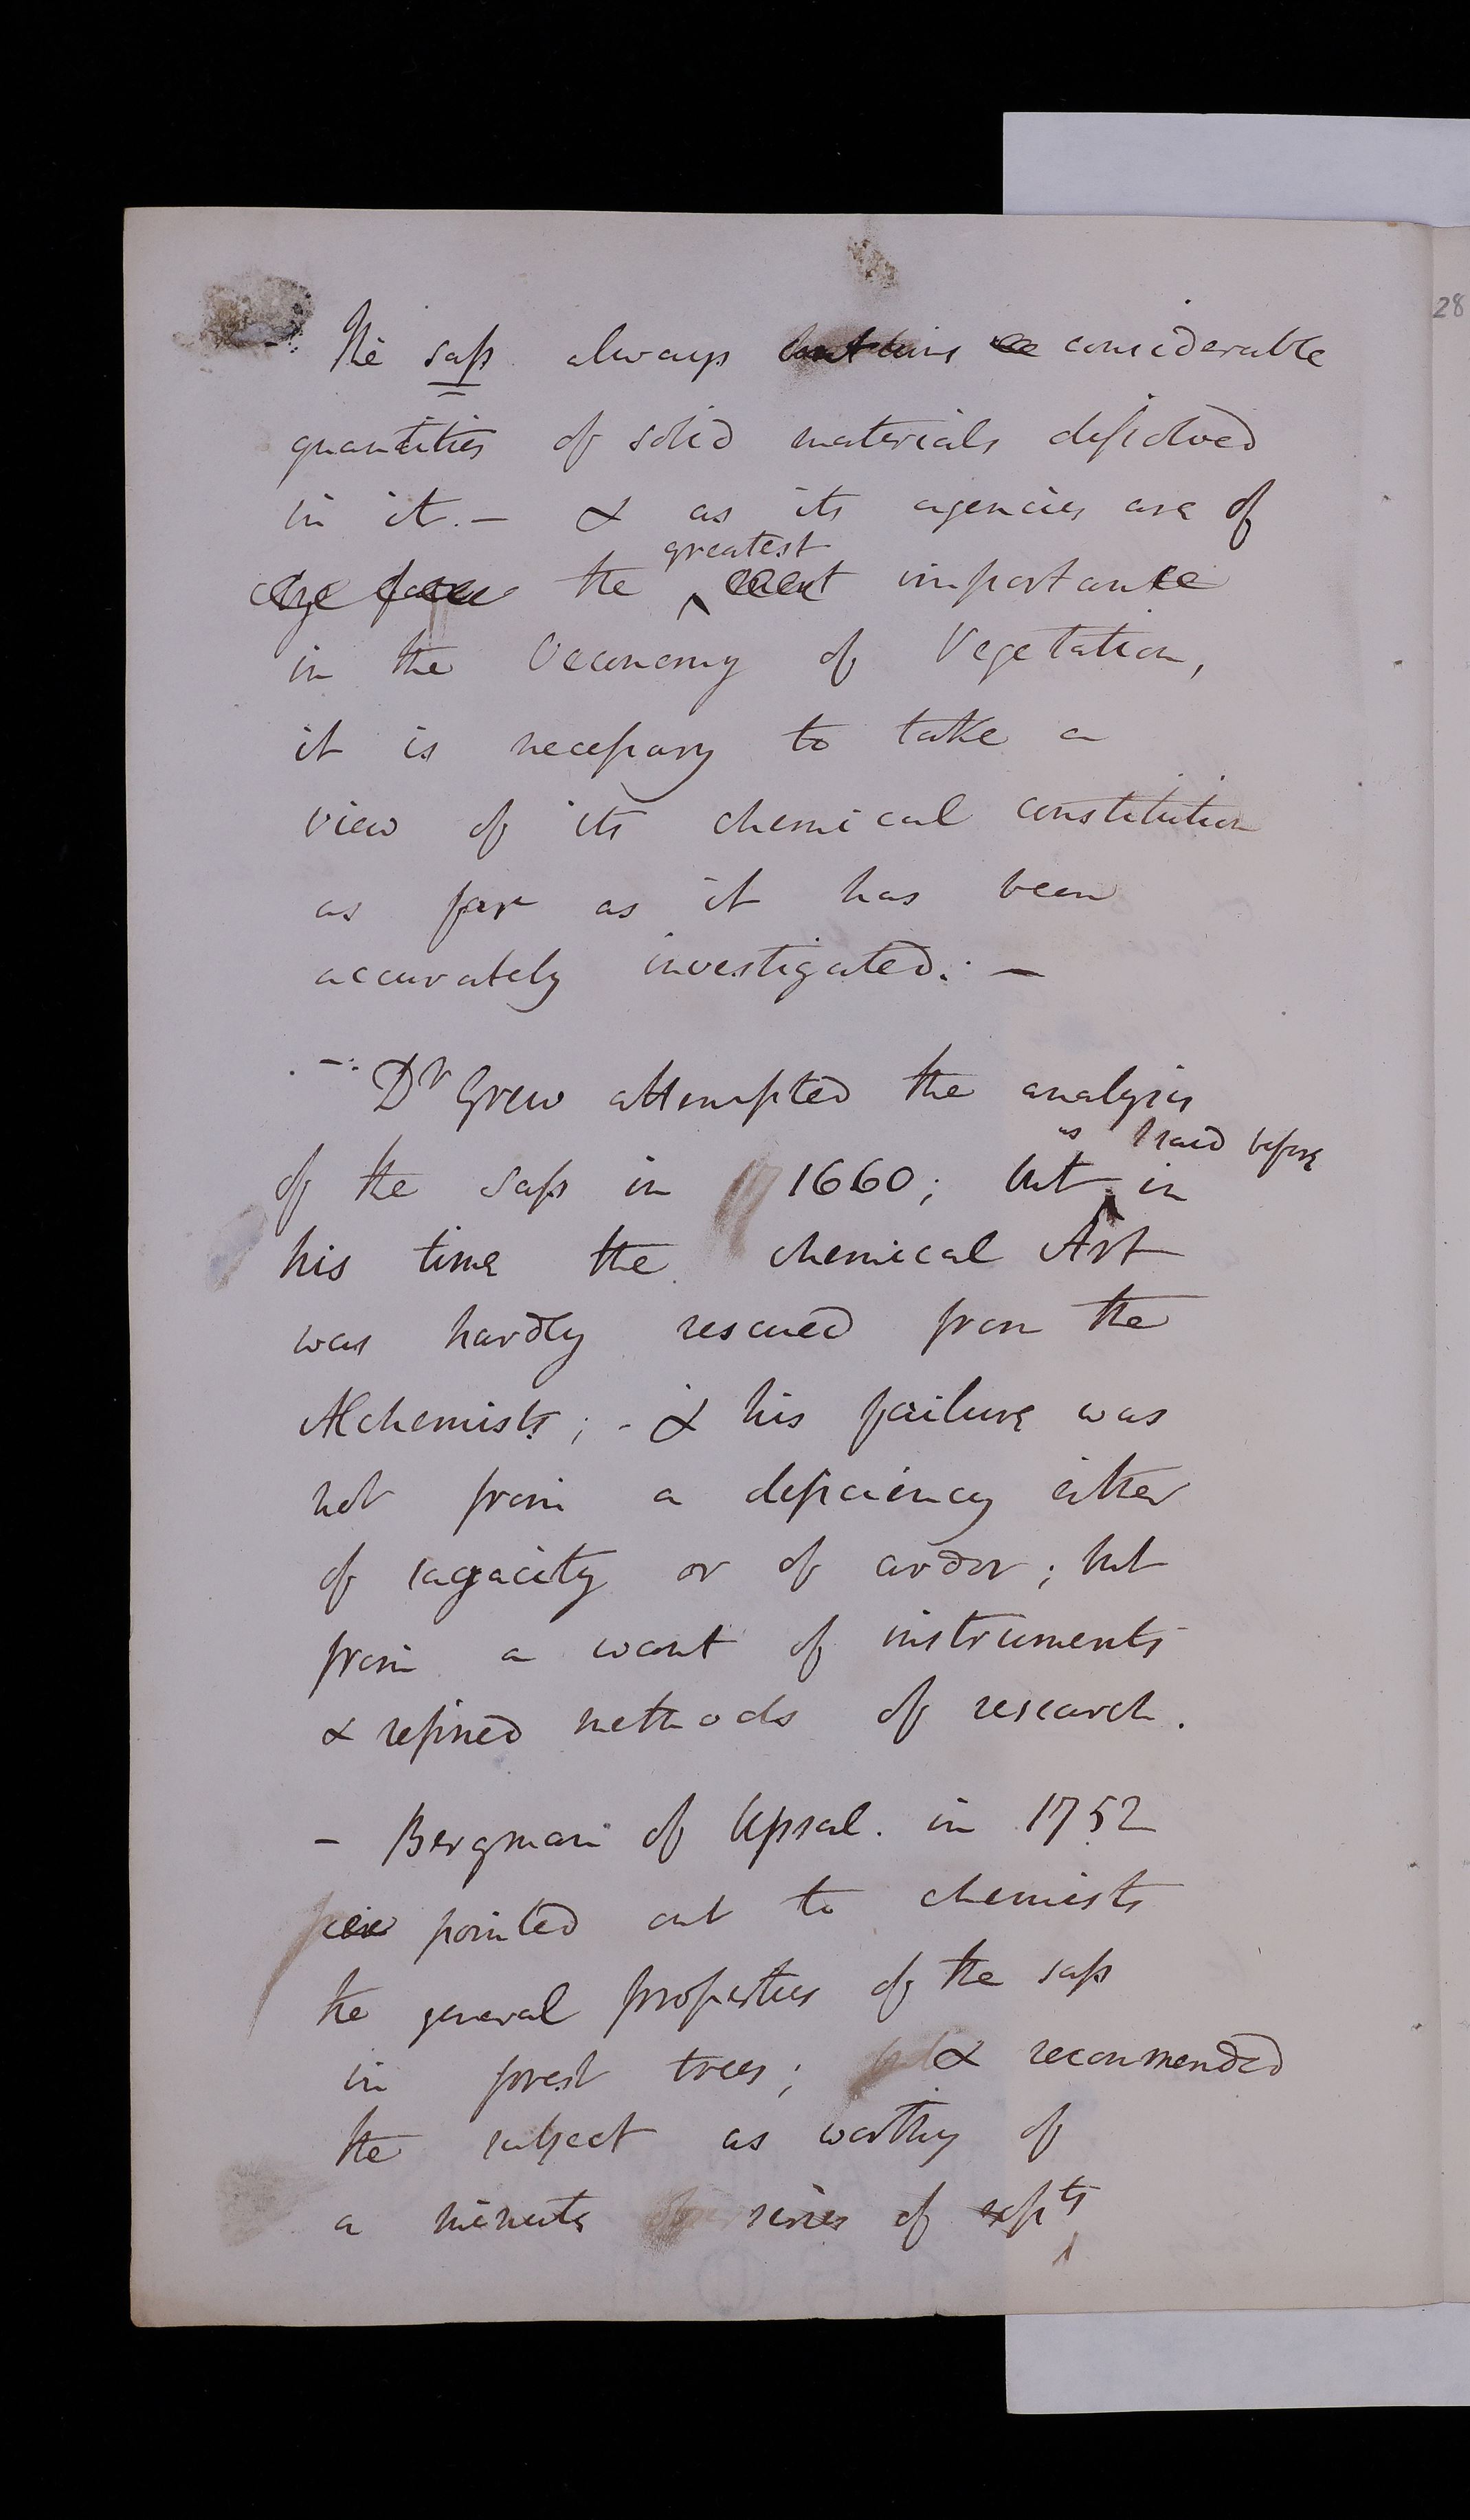 28
The sap always contains considerable
quantities of solid materials dissolved
in it. – & as its agencies are of
greatest
the ^ importance
in the Oeconomy of Vegetation,
it is necessary to take a
view of its chemical constitution
as far as it has been
accurately investigated. –
– Dr Grew attempted the analysis
as I said before
of the sap in 1660; but ^ in
his time the chemical Art
was hardly rescued from the
Alchemists; - & his failure was
not from a deficiency either
of sagacity or of ardor; but
from a want of instruments
& refined methods of research.
– Bergman of Upsal. in 1752
pointed out to chemists
the general properties of the sap
in forest trees; & recommended
the subject as worthy of
a minute series of expts